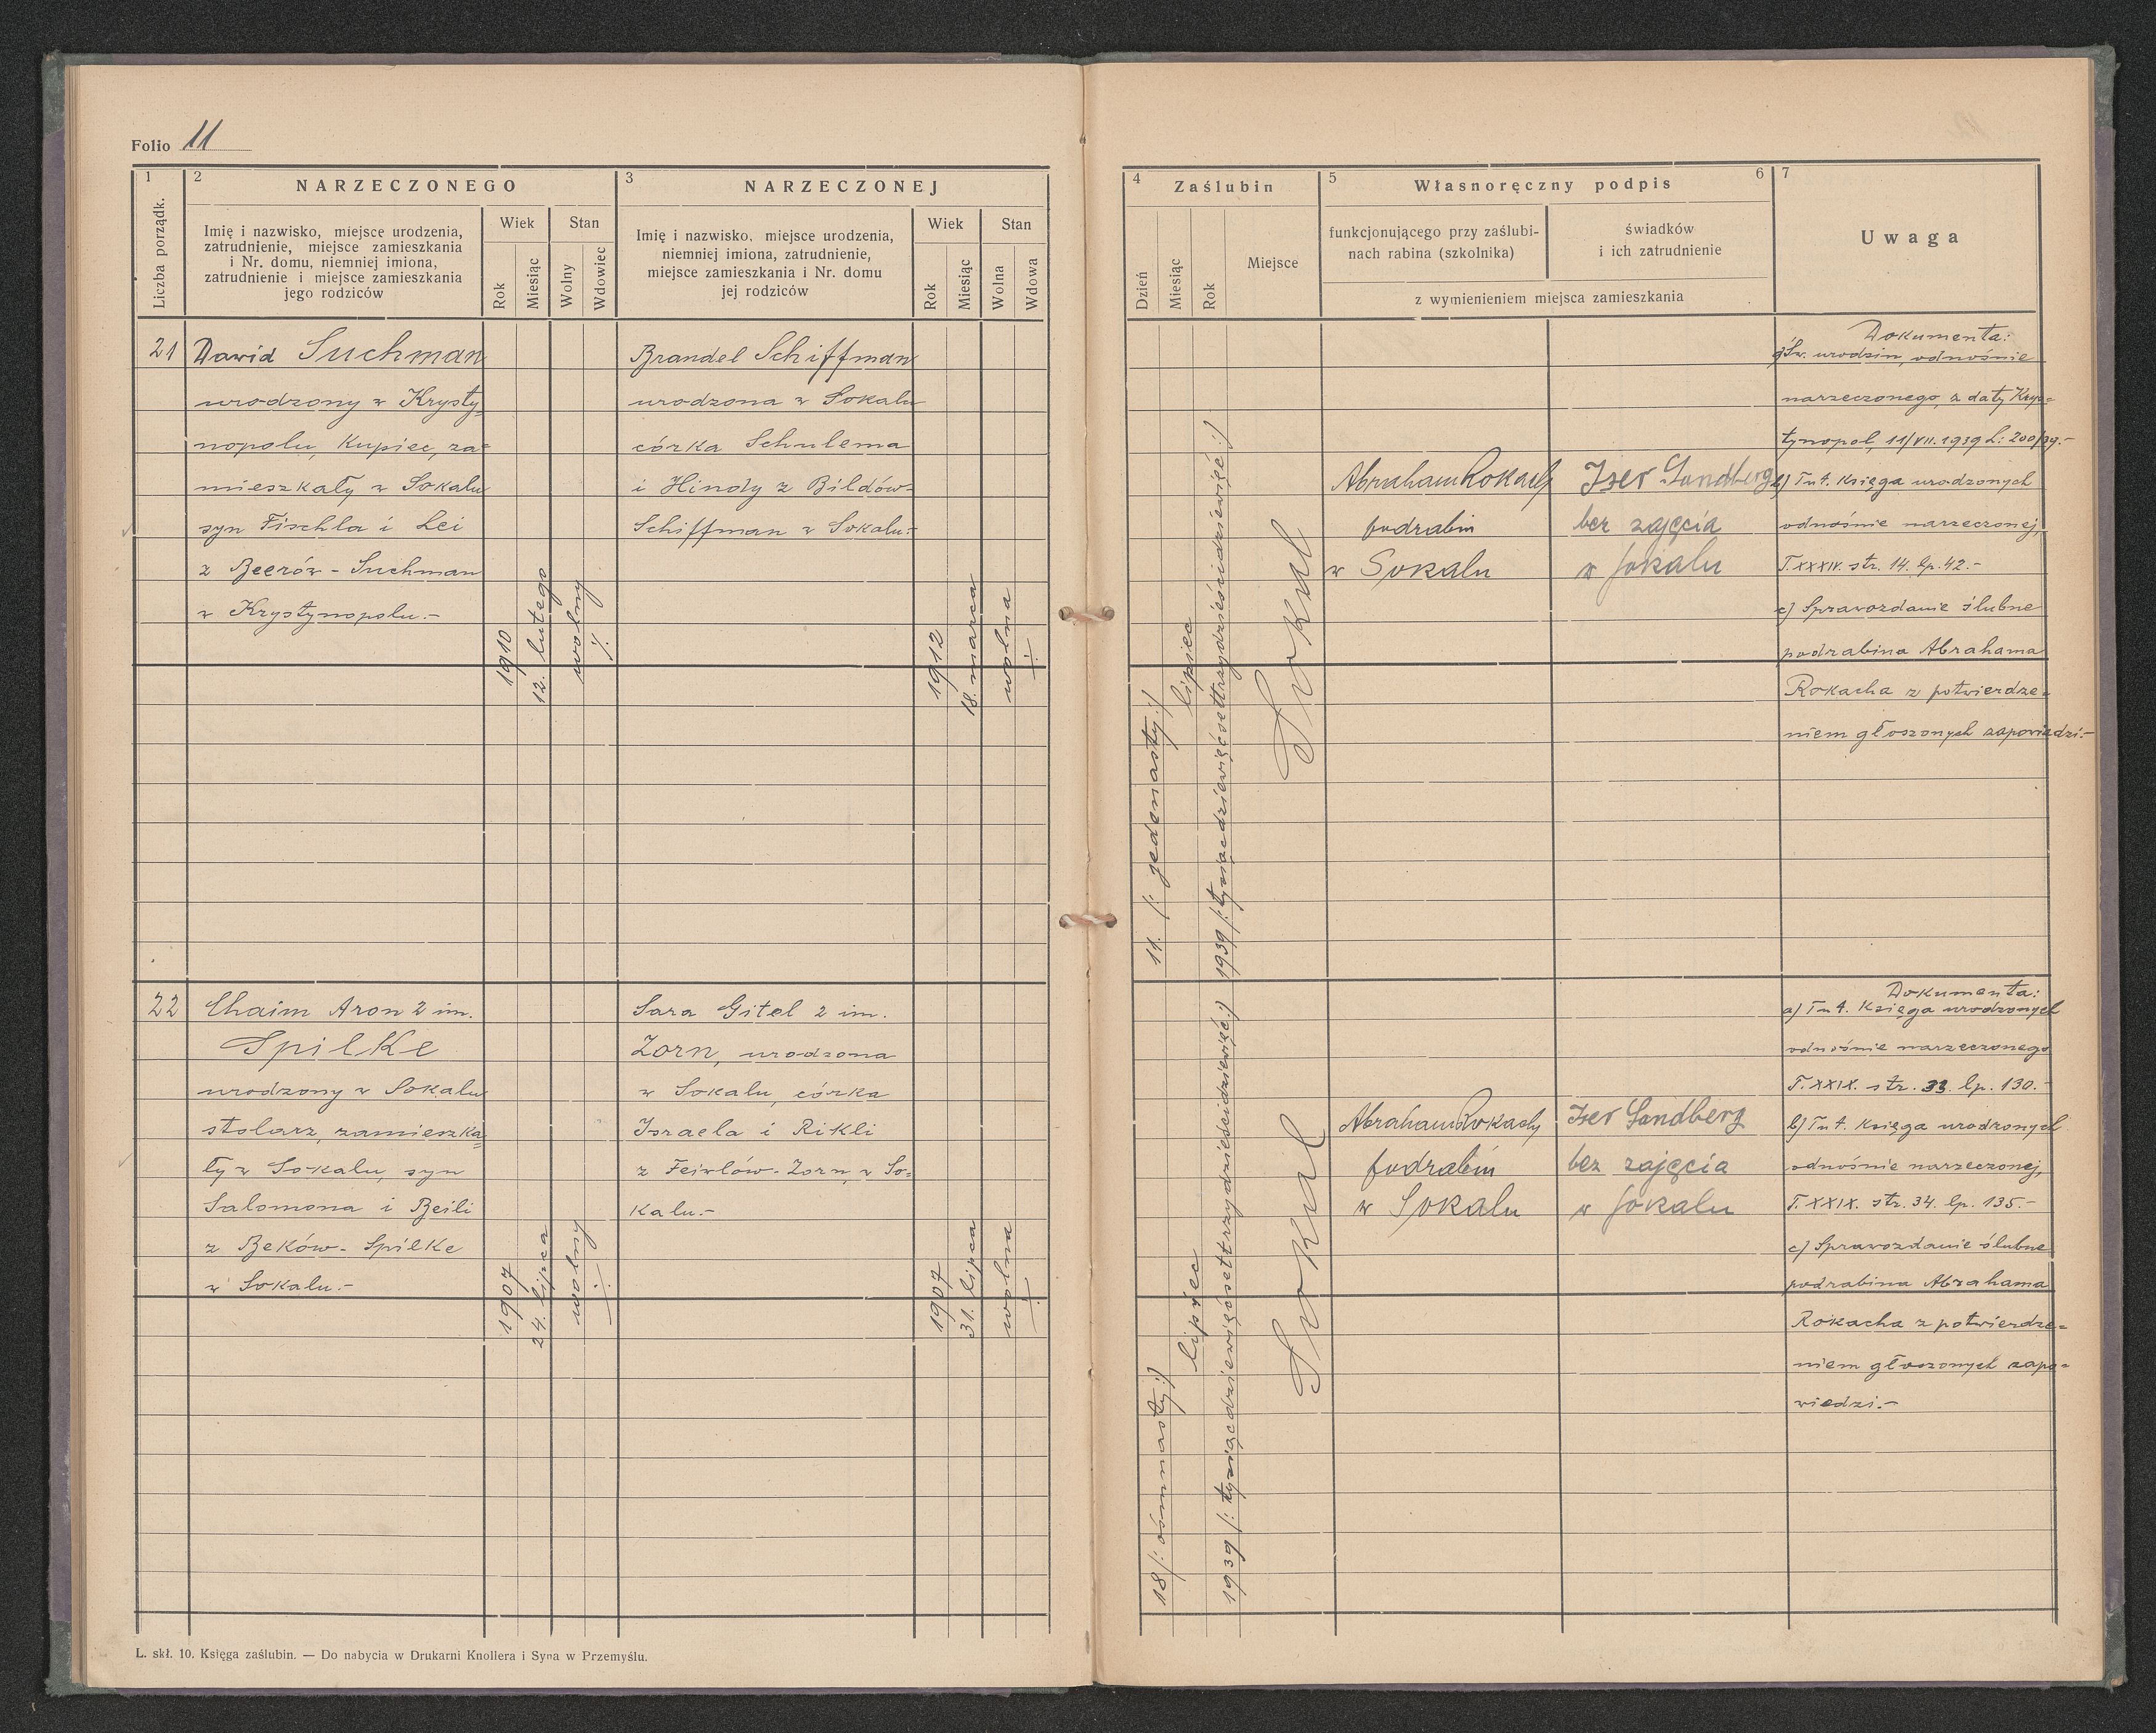 Folio 11
1
Liczba porządk.
2
NARZECZONEGO
Imię i nazwisko, miejsce urodzenia,
zatrudnienie, miejsce zamieszkania
i Nr. domu, niemniej imiona,
zatrudnienie i miejsce zamieszkania
jego rodziców
Wiek
Rok
Miesiąc
Stan
Wolny
Wdowiec
3
NARZECZONEJ
Imię i nazwisko, miejsce urodzenia,
niemniej imiona, zatrudnienie,
miejsce zamieszkania i Nr. domu
jej rodziców
Wiek
Rok
Miesiąc
Stan
Wolna
Wdowa
4
Zaślubin
Dzień
Miesiąc
Rok
Miejsce
5
Własnoręczny podpis
6
funkcjonującego przy zaślubi-
nach rabina (szkolnika)
świadków
i ich zatrudnienie
z wymienieniem miejsca zamieszkania
7
Uwaga
21
Dawid Suchman
urodzony w Krysty-
nopolu, kupiec, za=
mieszkały w Sokalu
syn Fischla i Lei
z Beerów - Suchman
w Krystynopolu.-
1910
12. lutego
wolny
Brandel Schiffman
urodzona w Sokalu
córka Schulema
i Hindy z Bildów-
Schiffman w Sokalu.-
1912
18. marca
wolna
11. /: jedenasty :/
lipiec
1939 /: tysiącdziewięćsettrzydzieścidziewięć :/
Sokal
Abraham Rokach
podrabin
w Sokalu
Iser Sandberg
bez zajęcia
w Sokalu
Dokumenta:
a) Św. urodzin, odnośnie
narzeczonego, z daty Krys=
tynopol, 11/VII. 1939 L: 200/39.-
b) Tut. Księga urodzonych
odnośnie narzeczonej,
T. XXXIV. str. 14. lp. 42.-
c) Sprawozdanie ślubne
podrabina Abrahama
Rokacha z potwierdze=
niem głoszonych zapowiedzi.-
22
Chaim Aron 2 im.
Spilke
urodzony w Sokalu
stolarz, zamieszka=
ły w Sokalu, syn
Salomona i Beili
z Beków - Spilke
w Sokalu.-
1907
24. lipca
wolny
Sara Gitel 2 im.
Zorn, urodzona
w Sokalu, córka
Israela i Rikli
z Feiwlów - Zorn, w So=
kalu.-
1907
31. lipca
wolna
18 /: ośmnasty :/
lipiec
1939 /: tysiącdziewięćsettrzydzieścidziewięć :/
Sokal
Abraham Rokach
podrabin
w Sokalu
Iser Sandberg
bez zajęcia
w Sokalu
Dokumenta:
a) Tut. Księga urodzonych
odnośnie narzeczonego
T. XXIX. str. 33. lp. 130.-
b) Tut. Księga urodzonych
odnośnie narzeczonej,
T. XXIX. str. 34. lp. 135.-
c) Sprawozdanie ślubne
podrabina Abrahama
Rokacha z potwierdze=
niem głoszonych zapo=
wiedzi.-
L. skł. 10. Księga zaślubin. — Do nabycia w Drukarni Knollera i Syna w Przemyślu.